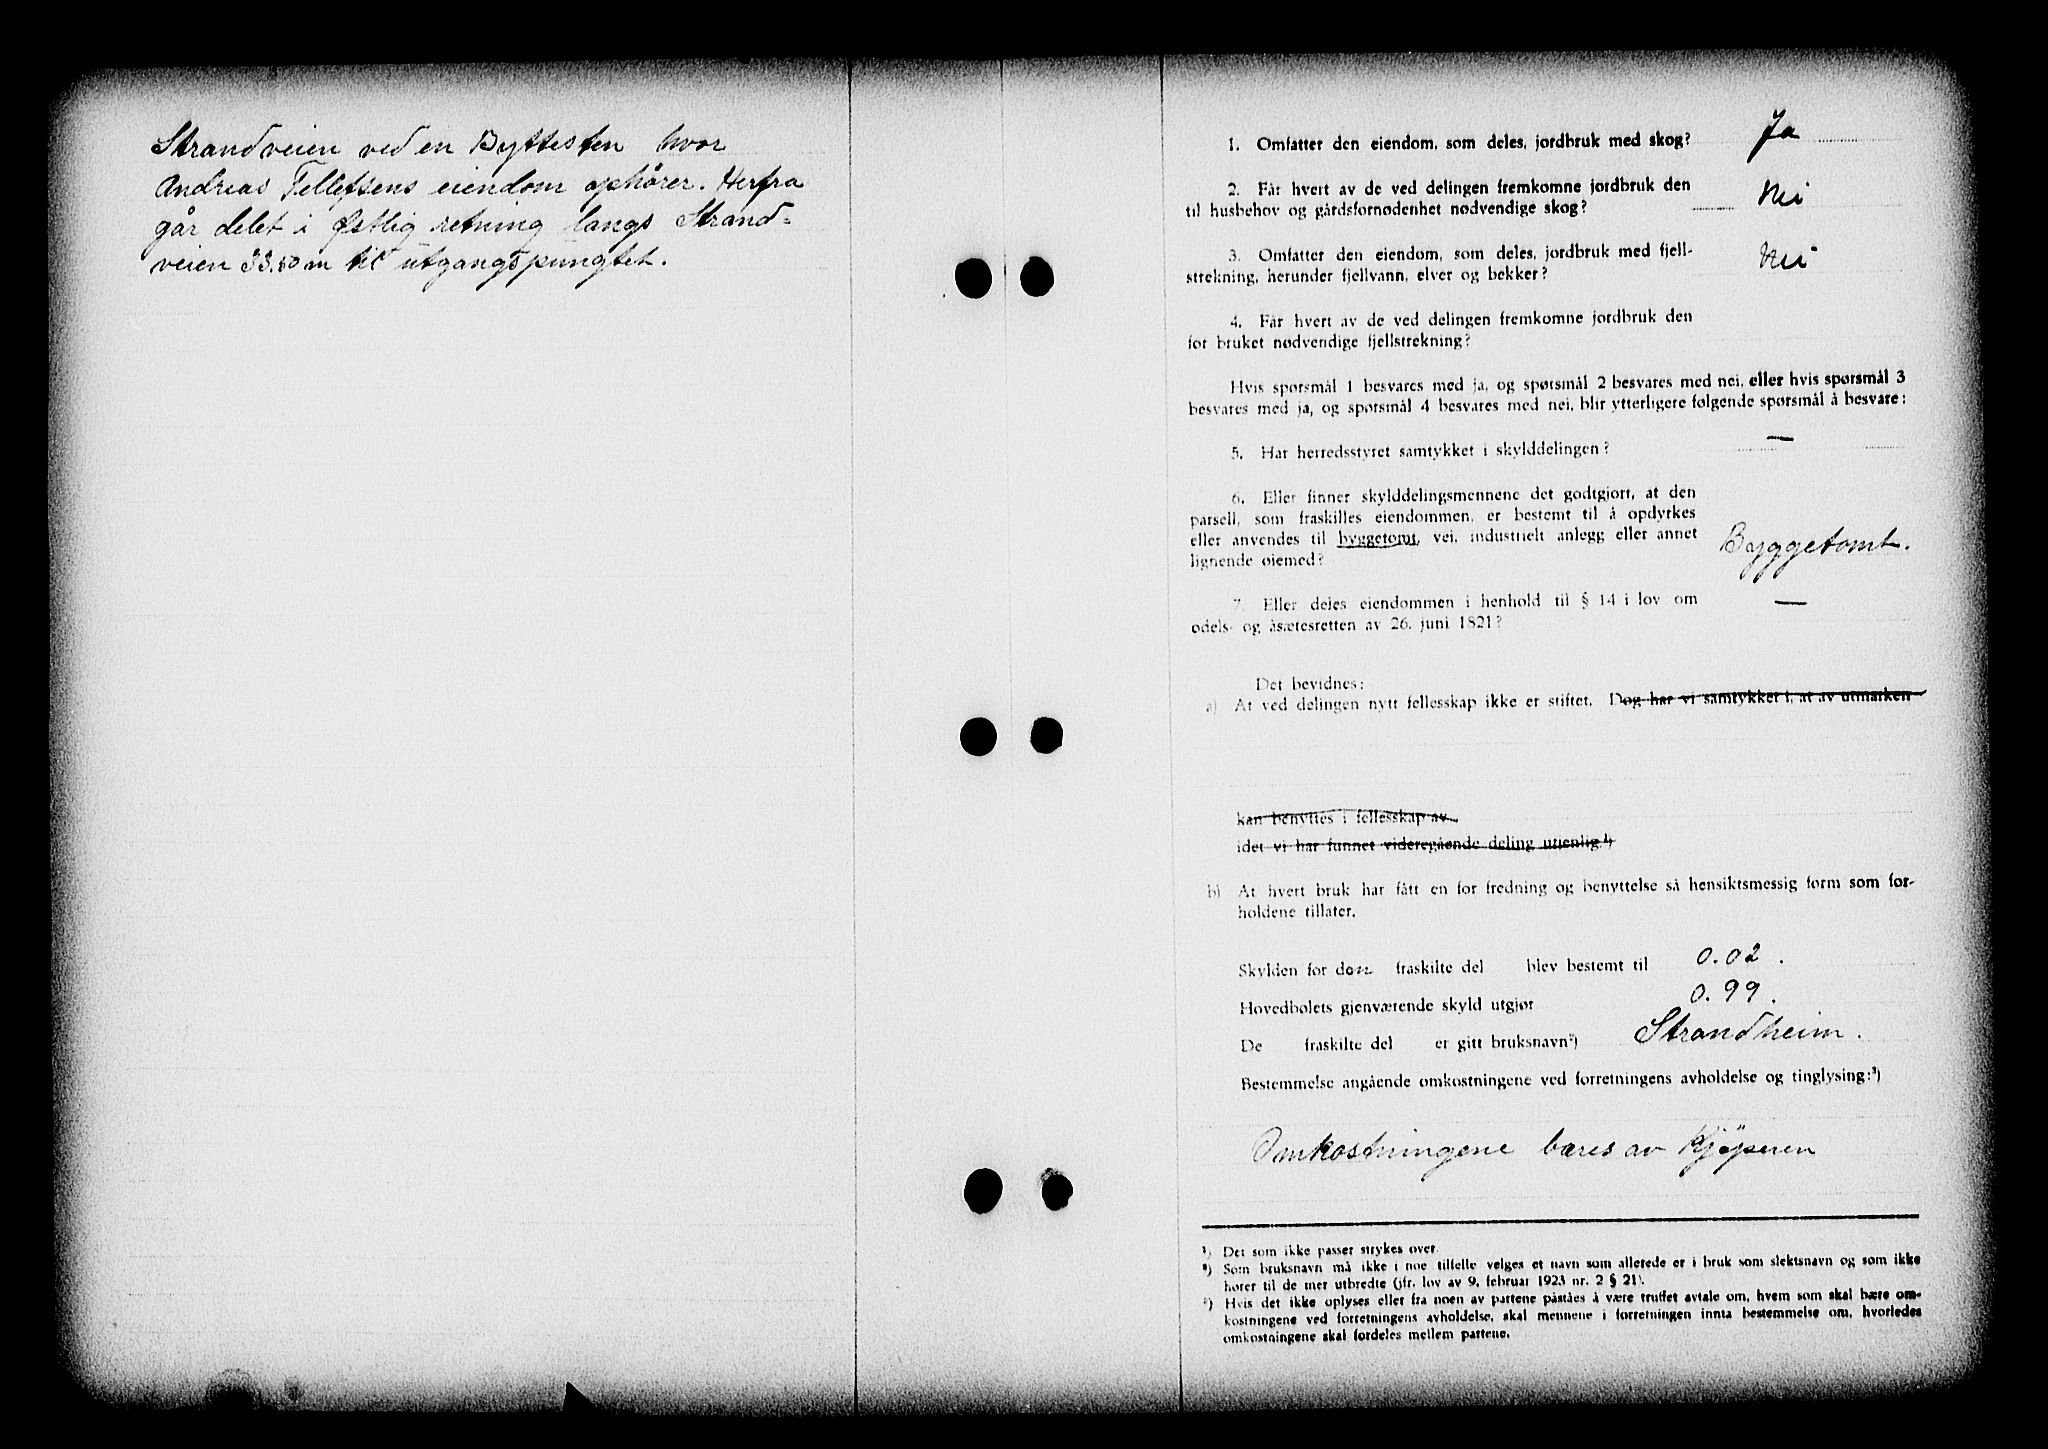 Strandveien ved en Byttesten hvor
Andreas Tellefsens eiendom ophører. Herfra
går delet i Østlig retning langs Strand=
veien 33.50 m til utgangspungtet.
1. Omfatter den eiendom, som deles, jordbruk med skog? Ja
2. Får hvert av de ved delingen fremkomne jordbruk den
til husbehov og gårdsfornødenhet nødvendige skog? Nei
3. Omfatter den eiendom, som deles, jordbruk med fjell-
strekning, herunder fjellvann, elver og bekker? Nei
4. Får hvert av de ved delingen fremkomne jordbruk den
for bruket nødvendige fjellstrekning?
Hvis spørsmål 1 besvares med ja, og spørsmål 2 besvares med nei, eller hvis spørsmål 3
besvares med ja, og spørsmål 4 besvares med nei, blir ytterligere følgende spørsmål å besvare:
5. Har herredsstyret samtykket i skylddelingen? —
6. Eller finner skylddelingsmennene det godtgjort, at den
parsell, som fraskilles eiendommen, er bestemt til å opdyrkes
eller anvendes til byggetomt, vei, industrielt anlegg eller annet
lignende øiemed? Byggetomt.
7. Eller deles eiendommen i henhold til § 14 i lov om
odels- og åsætesretten av 26. juni 1821? —
Det bevidnes:
a) At ved delingen nytt fellesskap ikke er stiftet. Dog har vi samtykket i, at av utmarken
kan benyttes i fellesskap av
idet vi har funnet videregående deling utjenlig.¹)
b) At hvert bruk har fått en for fredning og benyttelse så hensiktsmessig form som for-
holdene tillater.
Skylden for den fraskilte del blev bestemt til 0.02.
Hovedbølets gjenværende skyld utgjør 0.99.
De fraskilte del er gitt bruksnavn²) Strandheim.
Bestemmelse angående omkostningene ved forretningens avholdelse og tinglysing:³)
Omkostningene bæres av Kjøperen
¹) Det som ikke passer strykes over.
²) Som bruksnavn må ikke i noe tilfelle velges et navn som allerede er i bruk som slektsnavn og som ikke
hører til de mer utbredte (jfr. lov av 9. februar 1923 nr. 2 § 21).
³) Hvis det ikke oplyses eller fra noen av partene påståes å være truffet avtale om, hvem som skal bære om-
kostningene ved forretningens avholdelse, skal mennene i forretningen innta bestemmelse om, hvorledes
omkostningene skal fordeles mellem partene.